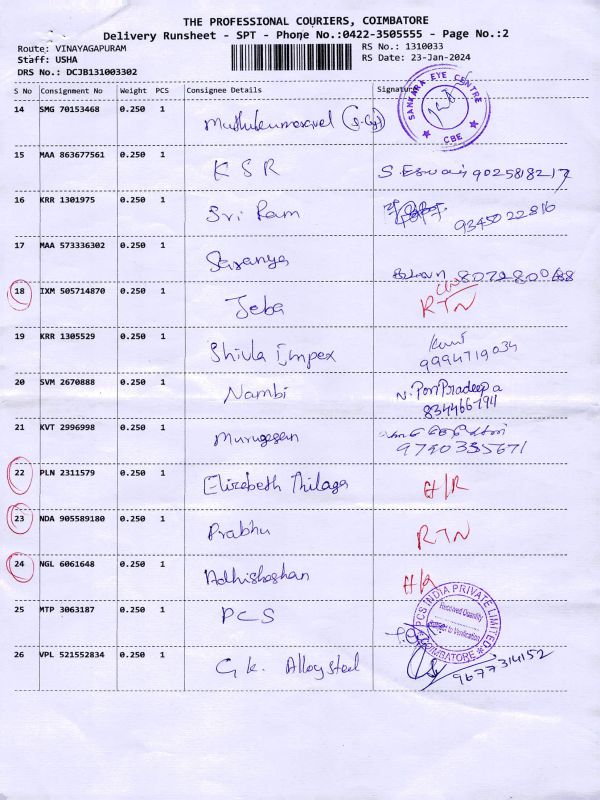 THE PROFESSIONAL COURIERS, COIMBATORE
Delivery Runsheet - SPT - Phone No.:0422-3505555 - Page No.:2
Route: VINAYAGAPURAM RS No.: 1310033
Staff: USHA RS Date: 23-Jan-2024
DRS No.: DCJB131003302
S No Consignment No Weight PCS Consignee Details Signature
SANKARA EYE CENTRE
CBE
14 SMG 70153468 0.250 1
15 MAA 863677561 0.250 1 KSR 9025818217
16 KRR 1301975 0.250 1 Sri Ram
9345022816
17 MAA 573336302 0.250 1 Saranya
18 IXM 505714870 0.250 1 Jeba RTN
19 KRR 1305529 0.250 1 Shivla Impex
9994719034
20 SVM 2670888 0.250 1 Nambi N. Pon Pradeepa
834466794
21 KVT 2996998 0.250 1 Murugesan
9740335671
22 PLN 2311579 0.250 1 Elizabeth Thilaga H/R
23 NDA 905589180 0.250 1 Prabhu RTN
24 NGL 6061648 0.250 1
25 MTP 3063187 0.250 1 PCS
PCS INDIA PRIVATE LIMITED
Received Quantity
Subject to Verification
COIMBATORE
26 VPL 521552834 0.250 1 G.K. Alloy steel
9677314152